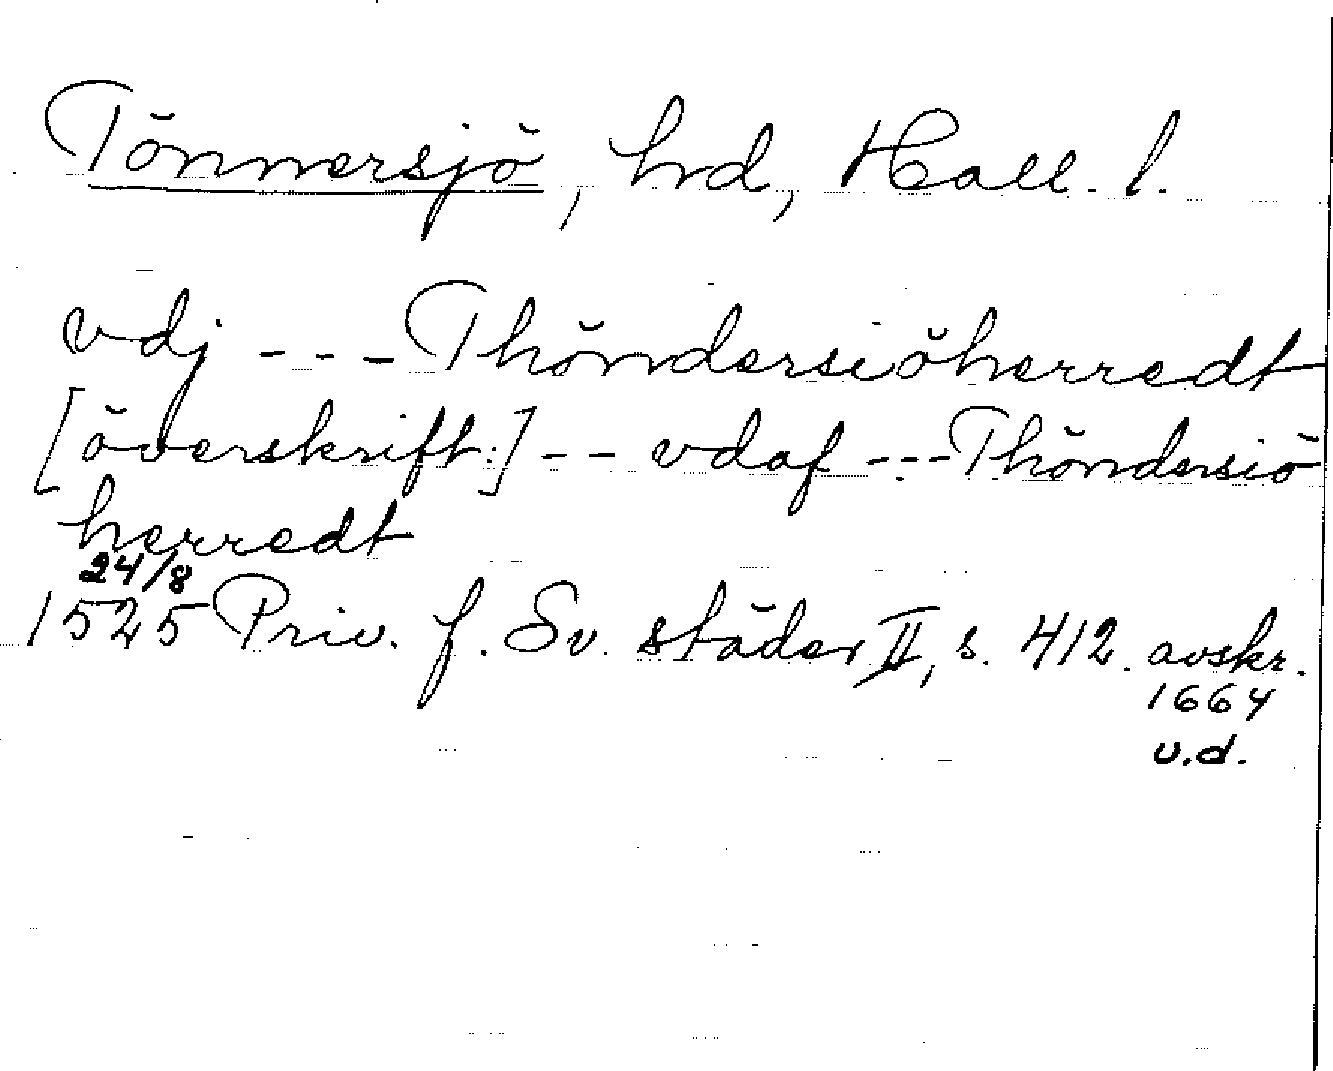 Tönnersjö, hrd, Hall. l.
vdj - - - Thöndersiöherredt
[överskrift:] - - vdaf - - - Thöndersiö
herredt
24/8
1525 Priv. f. Sv. städer II, s. 412. avskr.
1664
u.d.